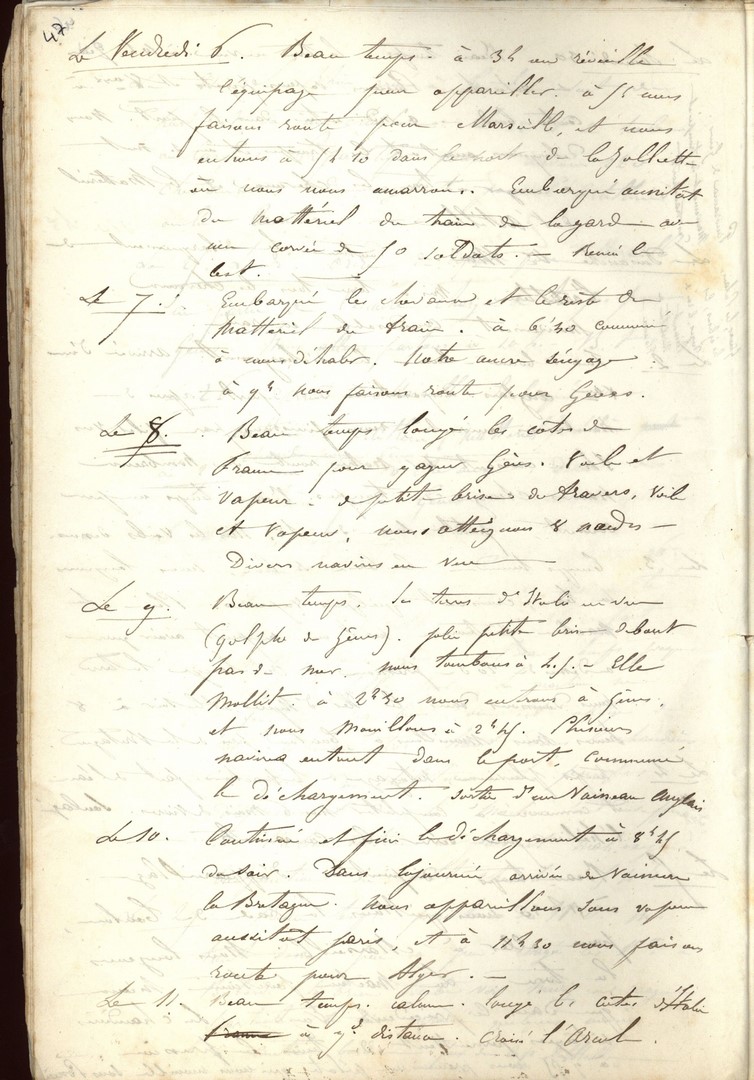 47
Le Vendredi 6. Beau temps. à 3h on réveille
l'équipage pour appareiller. à 5h nous
faisons route pour Marseille, et nous
entrons à 5h 10 dans le port de la Jolliette
où nous nous amarrons. Embarqué aussitôt
du mattériel du train de la garde avec
une corvée de 50 soldats. —
lest.
Le 7. Embarqué les chevaux et le reste du
Mattériel du train. à 6h30 commencé
à nous déhaler. Notre ancre s'engage
à 9h nous faisons route pour Gênes.
Le 8. Beau temps longé les côtes de
France pour gagner Gênes. Voile et
Vapeur. petite brise du travers, Voile
et Vapeur, nous atteignons 8 nœuds —
Divers navires en vue
Le 9. Beau temps. les terres d'Italie en vue
(golphe de Gênes). jolie petite brise debout
pas de mer. nous tombons à 4.5. — Elle
Mollit. à 2h30 nous entrons à Gênes,
et nous Mouillons à 2h45. Plusieurs
navires entrent dans le port, commencé
le déchargement. Sortie d'un Vaisseau Anglais
Le 10. Continué et fini le déchargement à 8h45
du soir. Dans la journée arrivée du Vaisseau
la Bretagne. Nous appareillons sous vapeur
aussitôt parés, et à 11h30 nous faisons
route pour Alger. —
Le 11. Beau temps. calme. longé les côtes d'Italie
France à distance. Croisé l'Arcole.